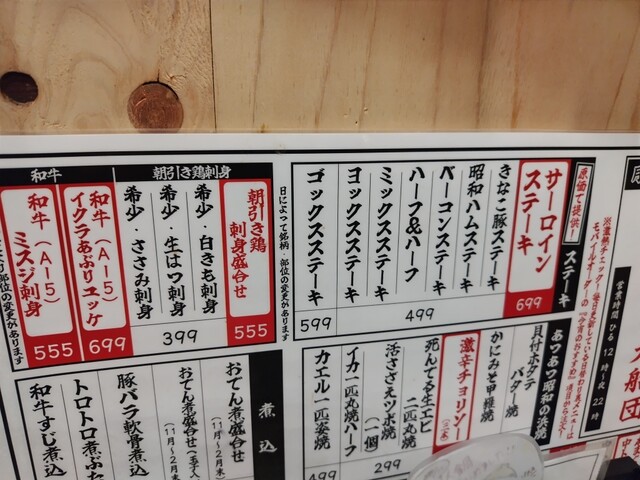 営業時間 ひる12時~夜22時
モバイルオーダーの『今宵のおすすめ』項目から注文!
派遣熱チェック!毎日更新している日替わり裏メニューは
原価で提供!
ステーキ
サーロイン
ステーキ
699
きなこ豚ステーキ
昭和ハムステーキ
ベーコンステーキ
ハーフ&ハーフ
ミックスステーキ
499
ヨックスステーキ
ゴックスステーキ
599
日によって銘柄・部位の変更があります
朝引き鶏刺身
朝引き鶏
刺身盛合せ
555
希少・白きも刺身
希少・生はつ刺身
希少・ささみ刺身
399
和牛
和牛(A-5)
イクラあぶりユッケ
699
和牛(A-5)
ミスジ刺身
555
部位の変更があります
あつあつ昭和の浜焼
貝付ホタテ
バター焼
かにみそ甲羅焼
激辛チョリソー
(三本)
死んでる生エビ
二匹丸焼
活さざえツボ焼
(一個)
イカ一匹丸焼ハーフ
299
カエル一匹姿焼
499
煮込
おでん煮盛合せ
(11月~2月末)
おでん煮盛合せ(玉子入)
(11月~2月末)
豚バラ軟骨煮込
トロトロ煮ぶた
和牛すじ煮込
船団